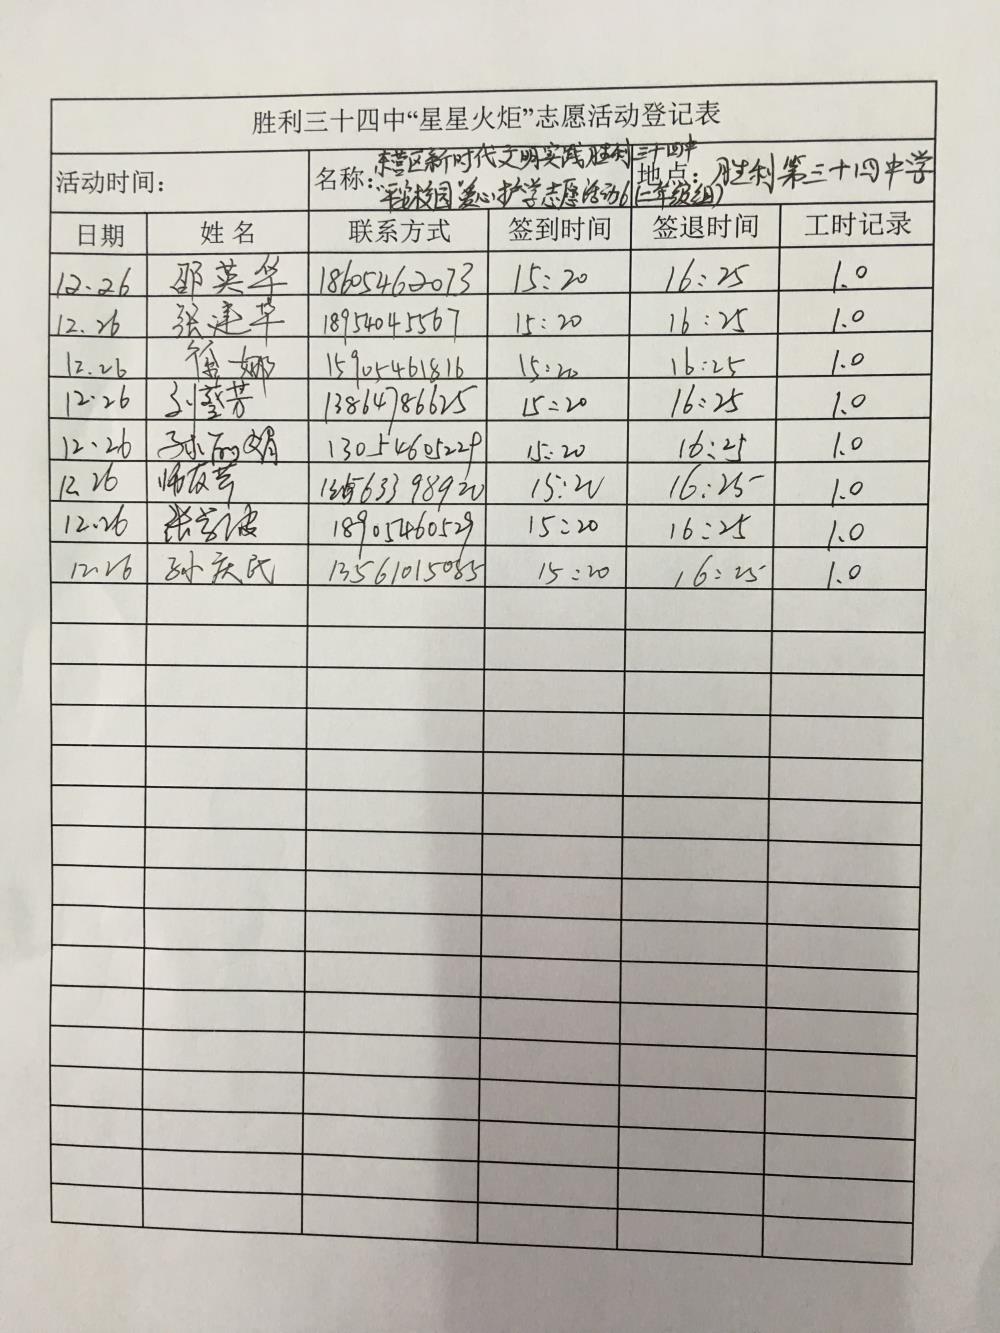 胜利三十四中“星星火炬”志愿活动登记表
活动时间： 名称：东营区新时代文明实践胜利三十四中 地点：胜利第三十四中学
“平安校园”爱心护学志愿活动6(二年级组)
日期 姓名 联系方式 签到时间 签退时间 工时记录
12.26 邵英华 18605462073 15:20 16:25 1.0
12.26 张建华 18954045567 15:20 16:25 1.0
12.26 徐娜 15905461816 15:20 16:25 1.0
12.26 刘芳 13864786625 15:20 16:25 1.0
12.26 孙丽娟 13054605229 15:20 16:25 1.0
12.26 15:20 16:25 1.0
12.26 张 18905460529 15:20 16:25 1.0
12.26 孙庆民 13561015085 15:20 16:25 1.0